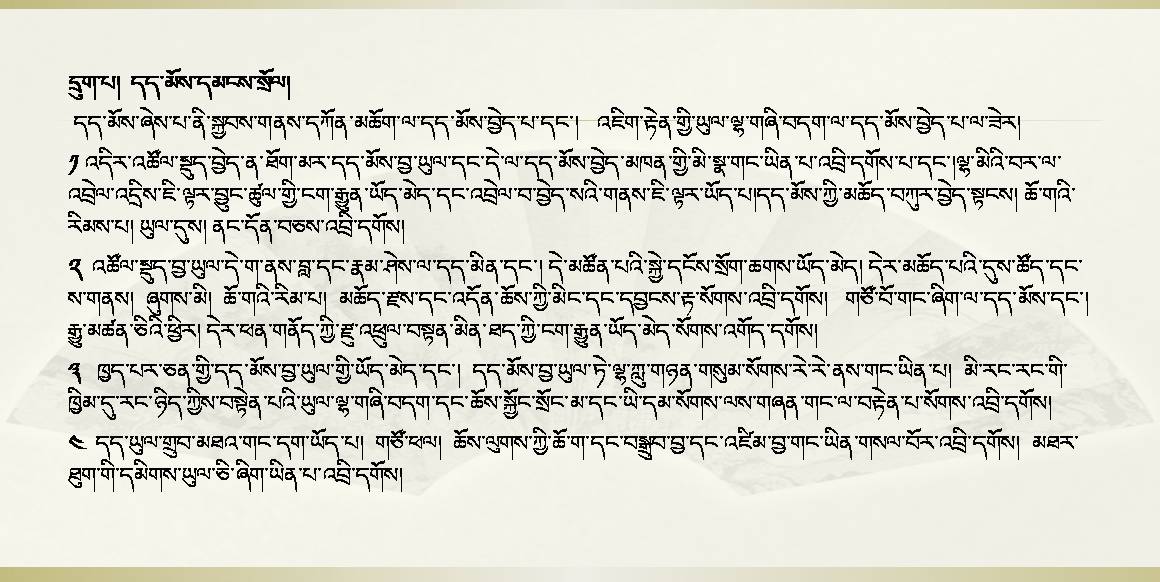 དྲུག་པ། དད་མོས་དམངས་སྲོལ།
དད་མོས་ཞེས་པ་ནི་སྐྱབས་གནས་དཀོན་མཆོག་ལ་དད་མོས་བྱེད་པ་དང་། འཇིག་རྟེན་གྱི་ཡུལ་ལྷ་གཞི་བདག་ལ་དད་མོས་བྱེད་པ་ལ་ཟེར།
༡ འདིར་འཚོལ་སྡུད་བྱེད་ན་ཐོག་མར་དད་མོས་བྱ་ཡུལ་དང་དེ་ལ་དད་མོས་བྱེད་མཁན་གྱི་མི་སྣ་གང་ཡིན་པ་འབྲི་དགོས་པ་དང་།ལྷ་མིའི་བར་ལ་
འབྲེལ་འདྲིས་ཇི་ལྟར་བྱུང་ཚུལ་གྱི་ངག་རྒྱུན་ཡོད་མེད་དང་འབྲེལ་བ་བྱེད་སའི་གནས་ཇི་ལྟར་ཡོད་པ།དད་མོས་ཀྱི་མཆོད་བཀུར་བྱེད་སྟངས། ཆོ་གའི་
རིམས་པ། ཡུལ་དུས། ནང་དོན་བཅས་འབྲི་དགོས།
༢ འཚོལ་སྡུད་བྱ་ཡུལ་དེ་ག་ནས་བླ་དང་རྣམ་ཤེས་ལ་དད་མིན་དང་། དེ་མཚོན་པའི་སྐྱེ་དངོས་སྲོག་ཆགས་ཡོད་མེད། དེར་མཆོད་པའི་དུས་ཚོད་དང་
ས་གནས། ཞུགས་མི། ཆོ་གའི་རིམ་པ། མཆོད་རྫས་དང་འདོན་ཆོས་ཀྱི་མིང་དང་དབྱངས་རྟ་སོགས་འབྲི་དགོས། གཙོ་བོ་གང་ཞིག་ལ་དད་མོས་དང་།
རྒྱུ་མཚན་ཅིའི་ཕྱིར། དེར་ཕན་གནོད་ཀྱི་རྫུ་འཕྲུལ་བསྟན་མིན་ཐད་ཀྱི་ངག་རྒྱུན་ཡོད་མེད་སོགས་འགོད་དགོས།
༣ ཁྱད་པར་ཅན་གྱི་དད་མོས་བྱ་ཡུལ་གྱི་ཡོད་མེད་དང་། དད་མོས་བྱ་ཡུལ་ཏེ་ལྷ་ཀླུ་གཉན་གསུམ་སོགས་རེ་རེ་ནས་གང་ཡིན་པ། མི་རང་རང་གི་
ཁྱིམ་དུ་རང་ཉིད་ཀྱིས་བསྟེན་པའི་ཡུལ་ལྷ་གཞི་བདག་དང་ཆོས་སྐྱོང་སྲོང་མ་དང་ཡི་དམ་སོགས་ལས་གཞན་གང་ལ་བརྟེན་པ་སོགས་འབྲི་དགོས།
༤ དད་ཡུལ་གྲུབ་མཐའ་གང་དག་ཡོད་པ། གཙོ་ཕལ། ཆོས་ལུགས་ཀྱི་ཆོ་ག་དང་བསྒྲུབ་བྱ་དང་འཛེམ་བྱ་གང་ཡིན་གསལ་བོར་འབྲི་དགོས། མཐར་
ཐུག་གི་དམིགས་ཡུལ་ཅི་ཞིག་ཡིན་པ་འབྲི་དགོས།